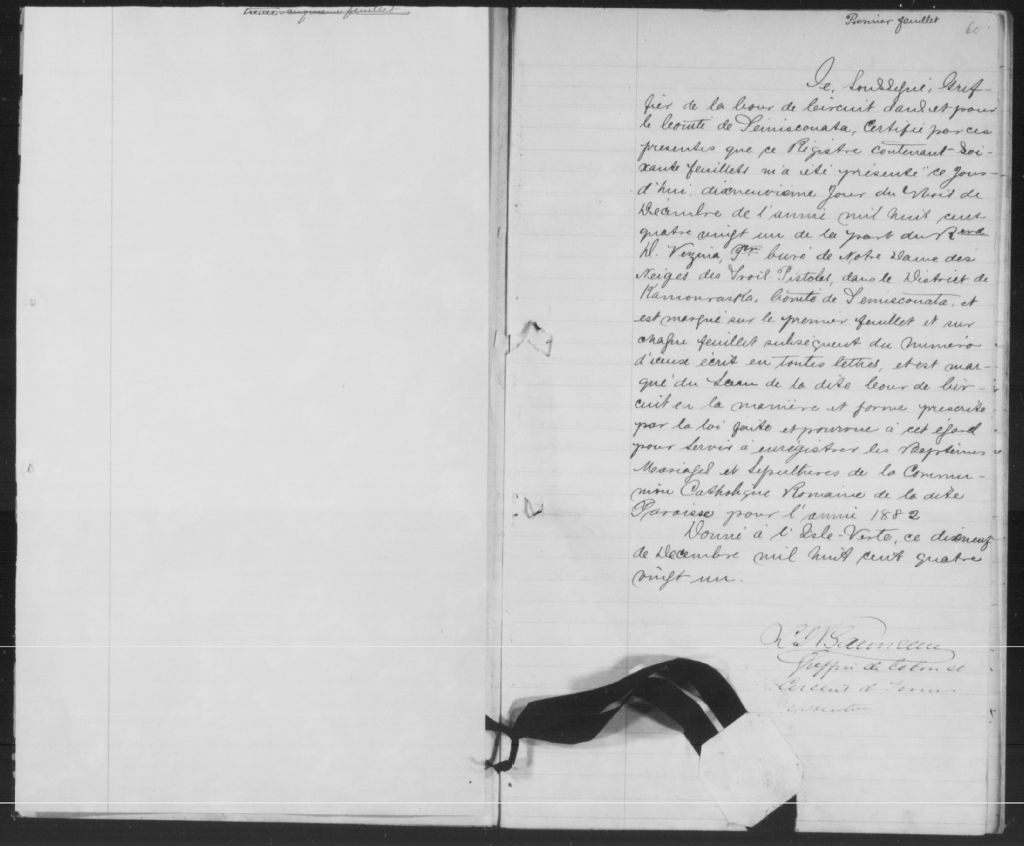 trente-cinquième feuillet
Premier feuillet
60
Je, Soussigné, Gref-
fier de la Cour de Circuit dans et pour
le Comté de Témiscouata, Certifie par ces
presentes que ce Régistre contenant Soi-
xante feuillets m'a été présenté ce Jour-
d'hui, dixneuvième Jour du Mois de
Décembre de l'année mil huit cent
quatre vingt un de la part du Revd
D. Vezina, Ptre Curé de Notre Dame des
Neiges des Trois Pistoles, dans le District de
Kamouraska, Comté de Témiscouata, et
est marqué sur le premier feuillet et sur
chaque feuillet subséquent du numéro
d'iceux écrit en toutes lettres, et est mar-
qué du Sceau de la dite Cour de Cir-
cuit en la manière et forme prescrite
par la loi faite et pourvue à cet égard
pour servir à enrégistrer les Baptêmes
Mariages et Sépultures de la Commu-
nion Catholique Romaine de la dite
Paroisse pour l'année 1882
Donné à l'Isle-Verte, ce dixneuf
de Décembre mil huit cent quatre
vingt un.
Greffier de